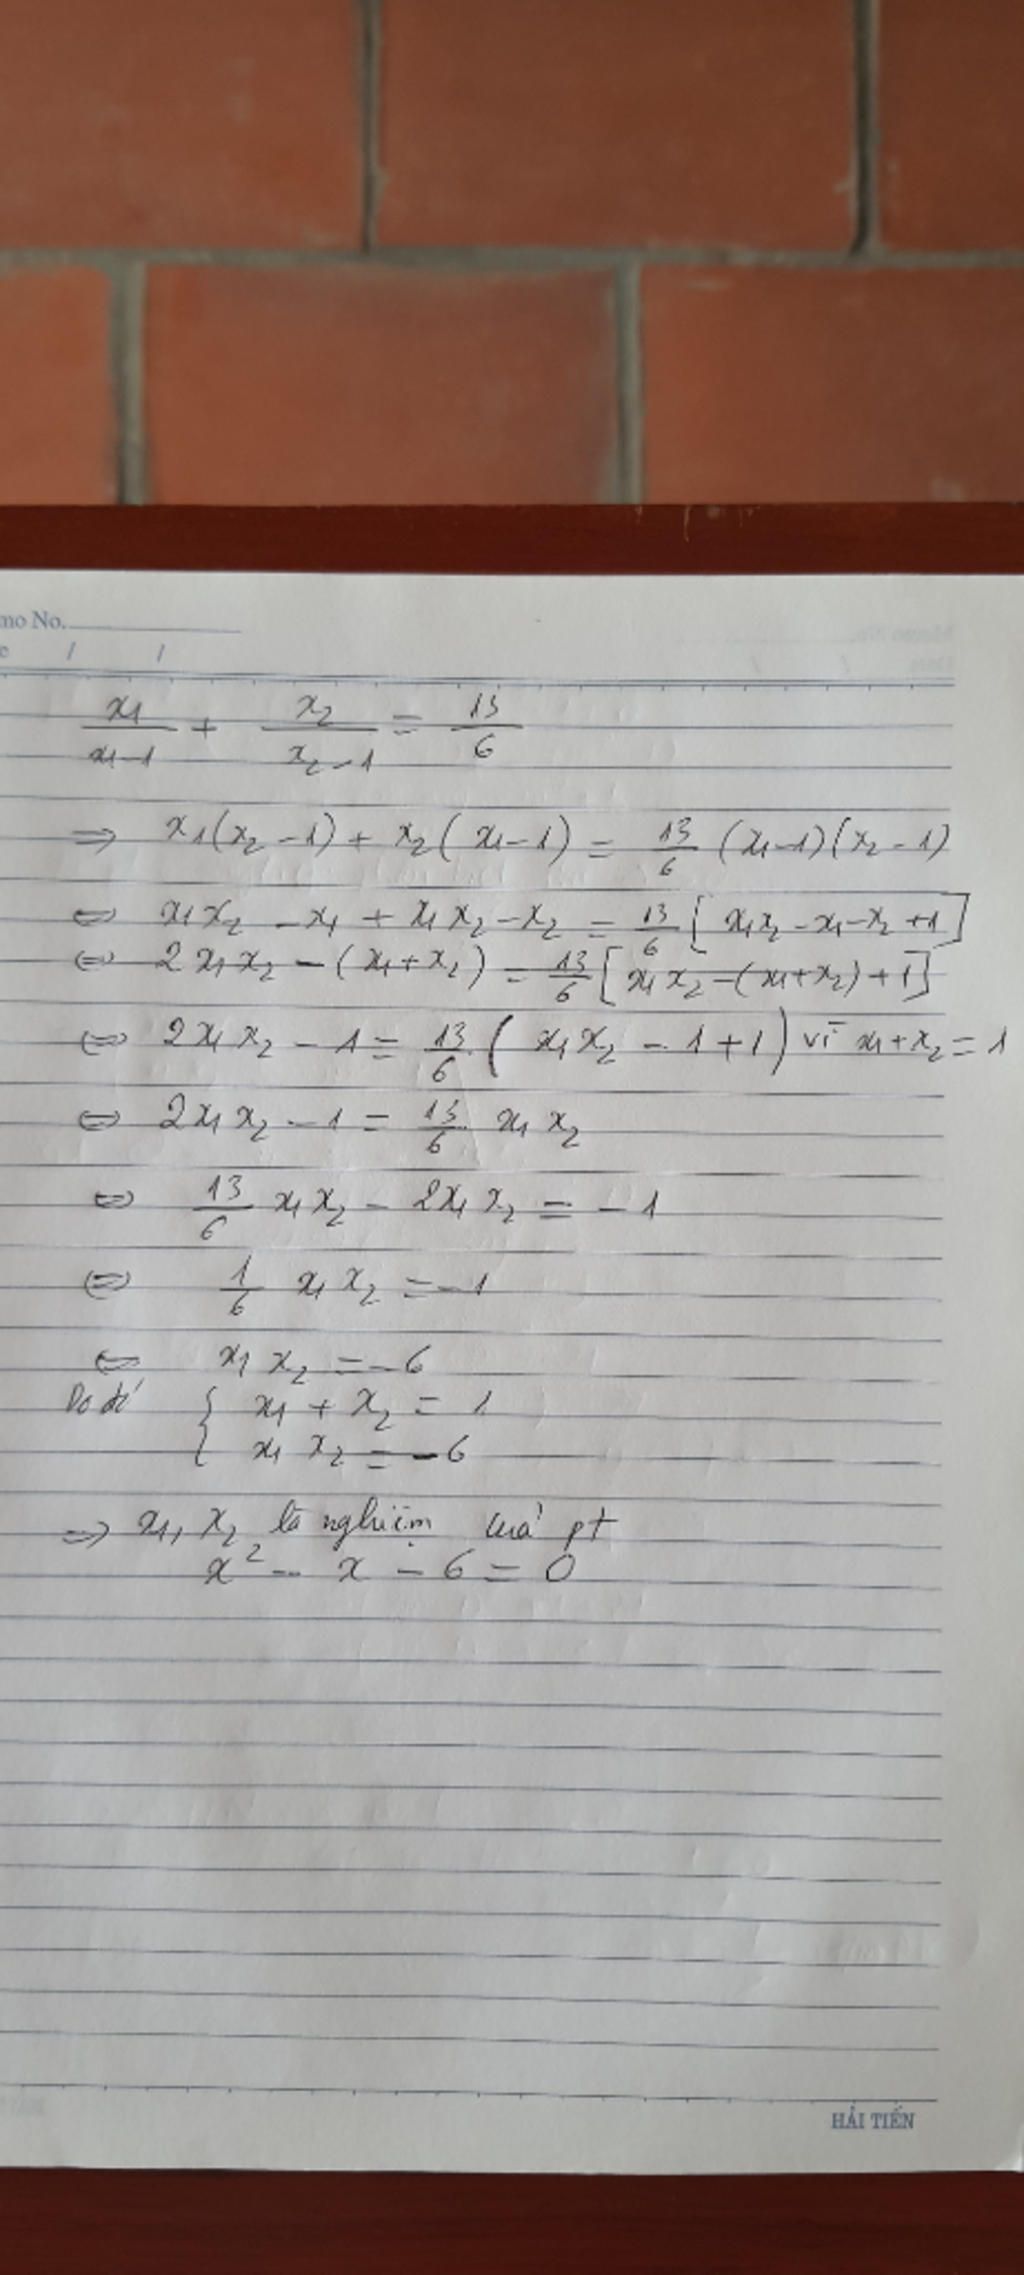 mo No.
e / /
x₁/(x₁-1) + x₂/(x₂-1) = 13/6
⇒ x₁(x₂-1) + x₂(x₁-1) = 13/6 (x₁-1)(x₂-1)
⇔ x₁x₂ - x₁ + x₁x₂ - x₂ = 13/6 [x₁x₂ - x₁ - x₂ + 1]
⇔ 2x₁x₂ - (x₁+x₂) = 13/6 [x₁x₂ - (x₁+x₂) + 1]
⇔ 2x₁x₂ - 1 = 13/6 (x₁x₂ - 1 + 1) vì x₁+x₂ = 1
⇔ 2x₁x₂ - 1 = 13/6 x₁x₂
⇔ 13/6 x₁x₂ - 2x₁x₂ = -1
⇔ 1/6 x₁x₂ = -1
⇔ x₁x₂ = -6
Do đó { x₁ + x₂ = 1
x₁x₂ = -6
⇒ x₁, x₂ là nghiệm của pt
x² - x - 6 = 0
HẢI TIẾN